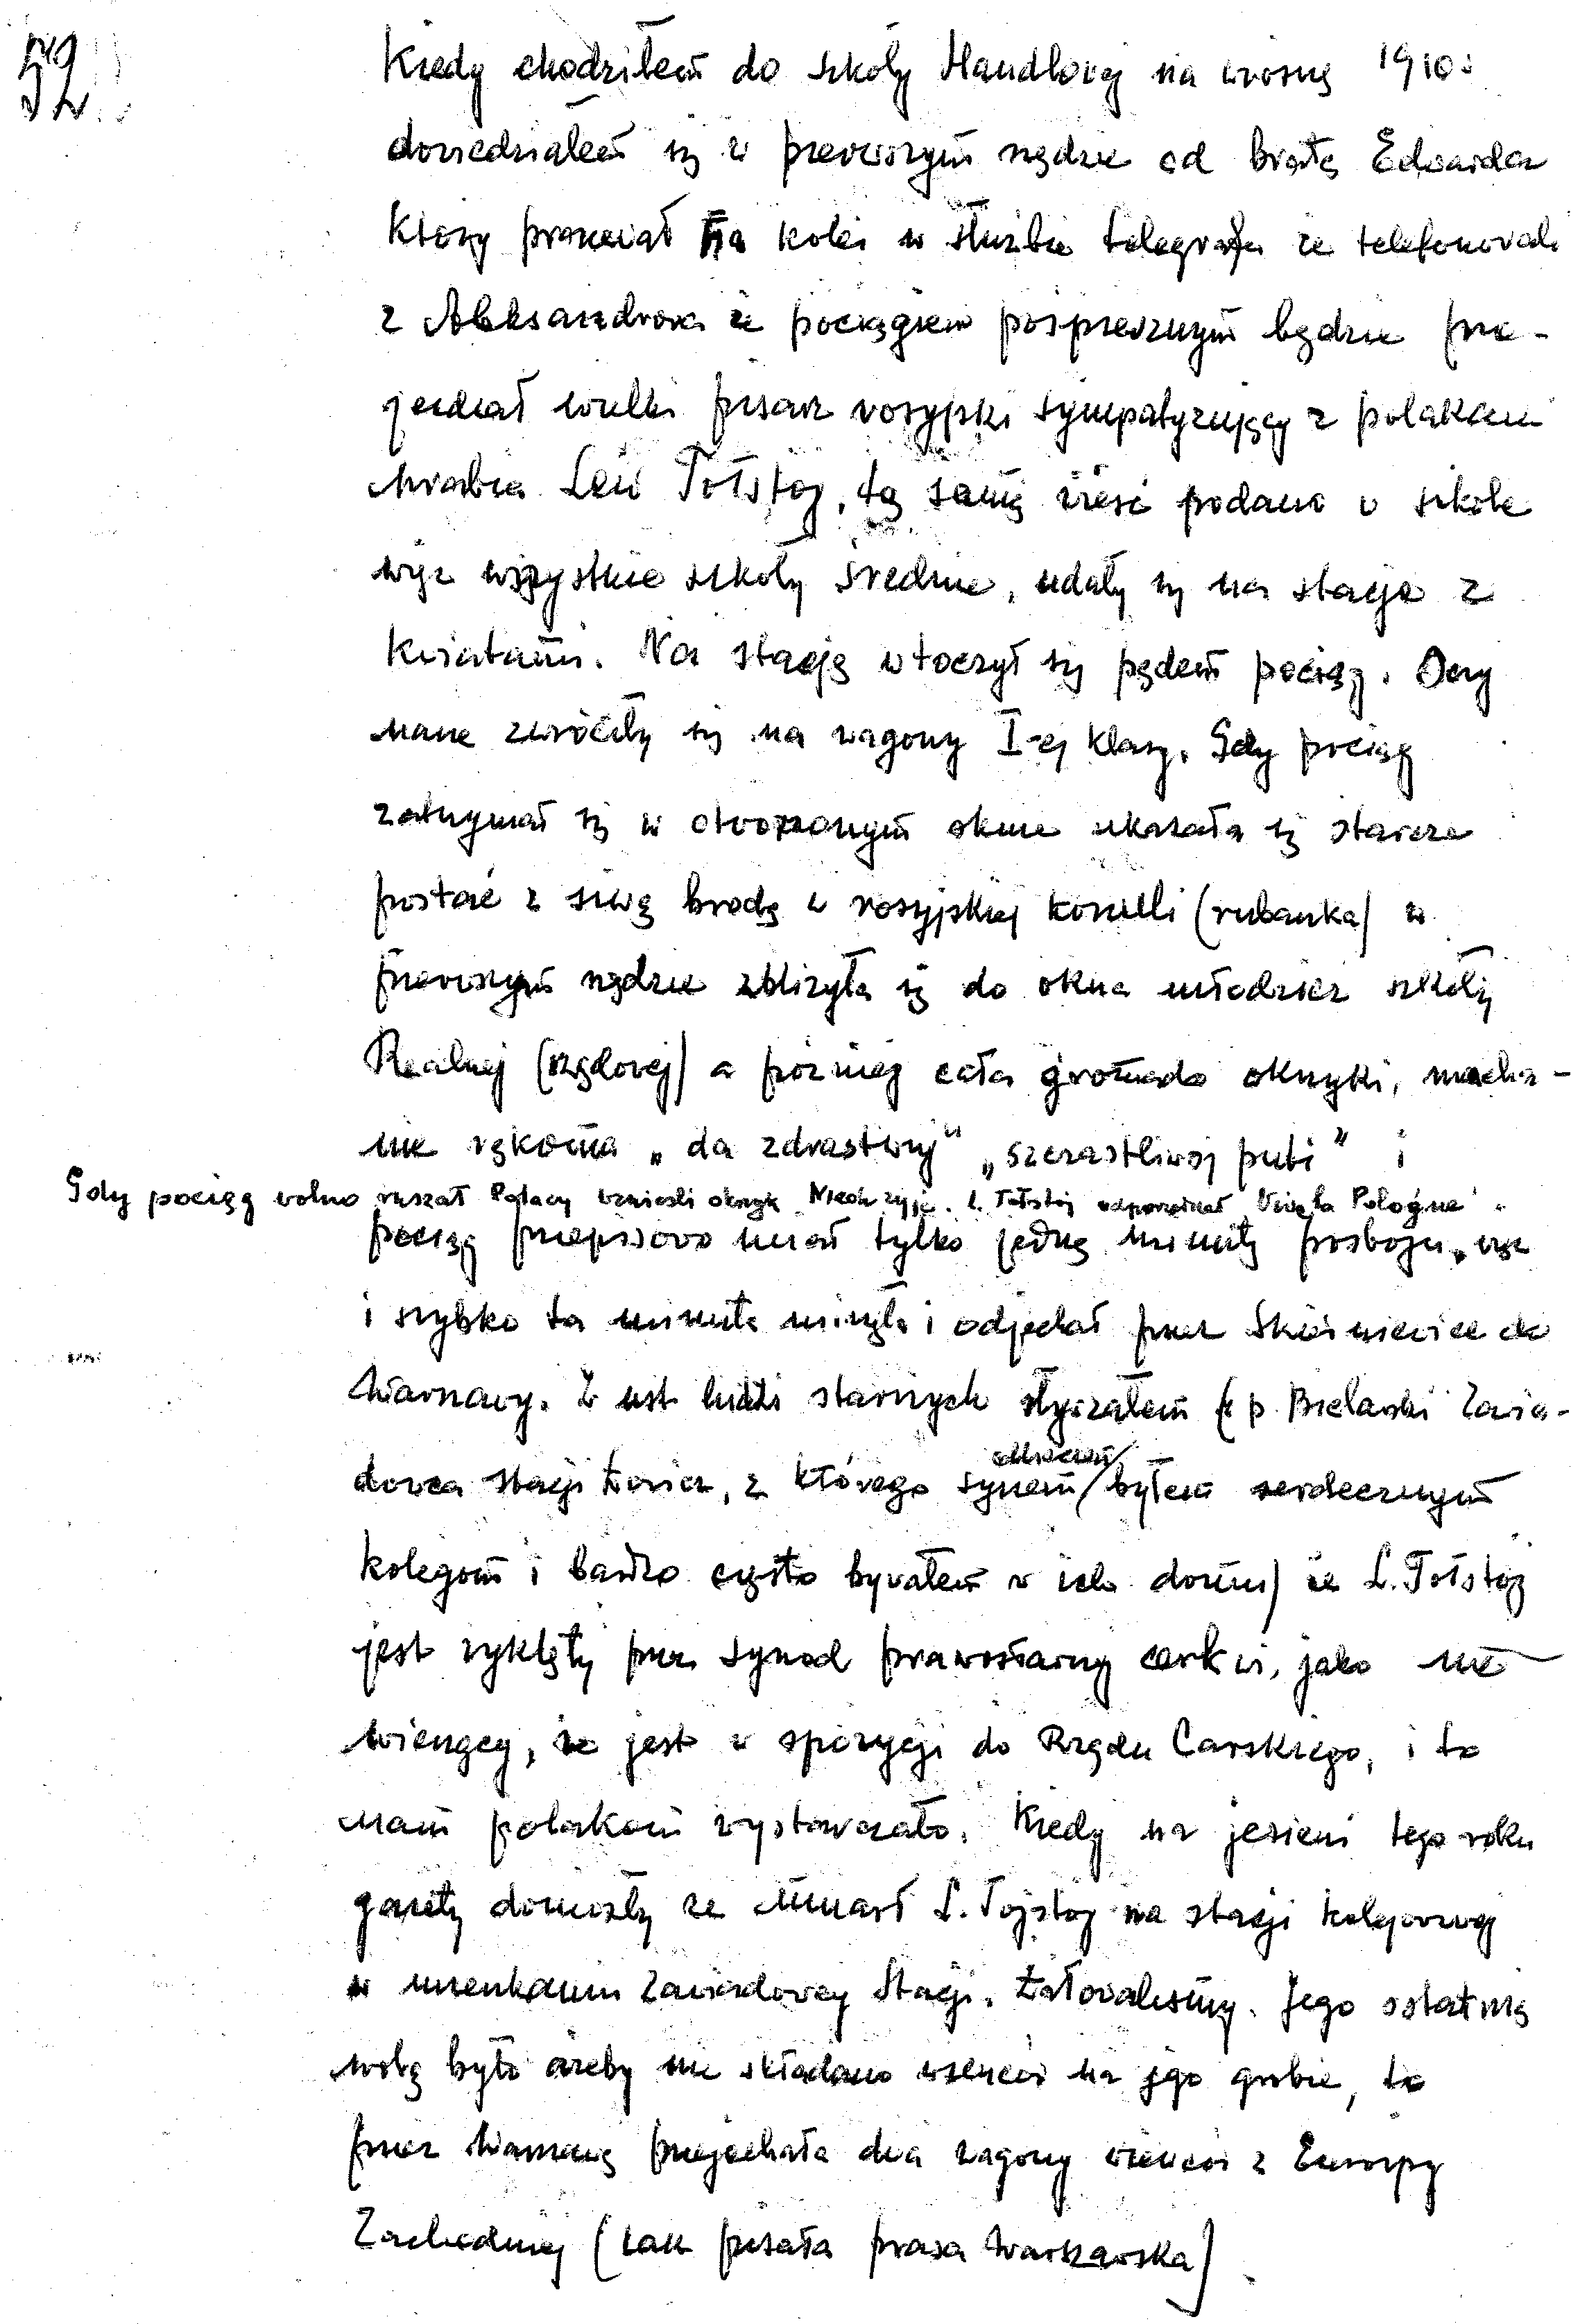 52
Kiedy chodziłem do szkoły Handlowej na wiosnę 1910 r
dowiedziałem się w pierwszym rzędzie od brata Edwarda
który pracował na kolei w służbie telegrafu że telefonowali
z Aleksandrowa że pociągiem pospiesznym będzie prze-
jeżdżał wielki pisarz rosyjski sympatyzujący z polakami
hrabia Lew Tołstoj, tę samą wieść podano w szkole
więc wszystkie szkoły średnie, udały się na stację z
kwiatami. Na stację wtoczył się pędem pociąg. Oczy
nasze zwróciły się na wagony I-ej klasy. Gdy pociąg
zatrzymał się w otworzonym oknie ukazała się starcza
postać z siwą brodą w rosyjskiej koszuli (rubaszka) w
pierwszym rzędzie zbliżyła się do okna młodzież szkoły
Realnej (rządowej) a później cała gromada okrzyki, macha-
nie rękoma „da zdrastwuj" „szczastliwoj puti" i
Gdy pociąg wolno ruszał Polacy wznieśli okrzyk Niech żyje. L. Tołstoj odpowiedział Vive la Pologne
pociąg przepisowo miał tylko jedną minutę postoju, więc
i szybko ta minuta minęła i odjechał przez Skierniewice do
Warszawy. Z ust ludzi starszych słyszałem (p. Bielawski Zawia-
dowca stacji Łowicz, z którego synem byłem serdecznym
kolegom i bardzo często bywałem w ich domu) że L. Tołstoj
jest wyklęty przez synod prawosławny cerkwi, jako nie
wierzący, że jest w opozycji do Rządu Carskiego, i to
nam polakom wystarczało. Kiedy na jesieni tego roku
gazety doniosły że umarł L. Tojstoj na stacji kolejowej
w mieszkaniu Zawiadowcy Stacji. Żałowaliśmy. Jego ostatnią
wolą było ażeby nie składano wieńcy na jego grobie, to
przez Warszawę przejechała dwa wagony wieńcy z Europy
Zachodniej (tak pisała prasa Warszawska)